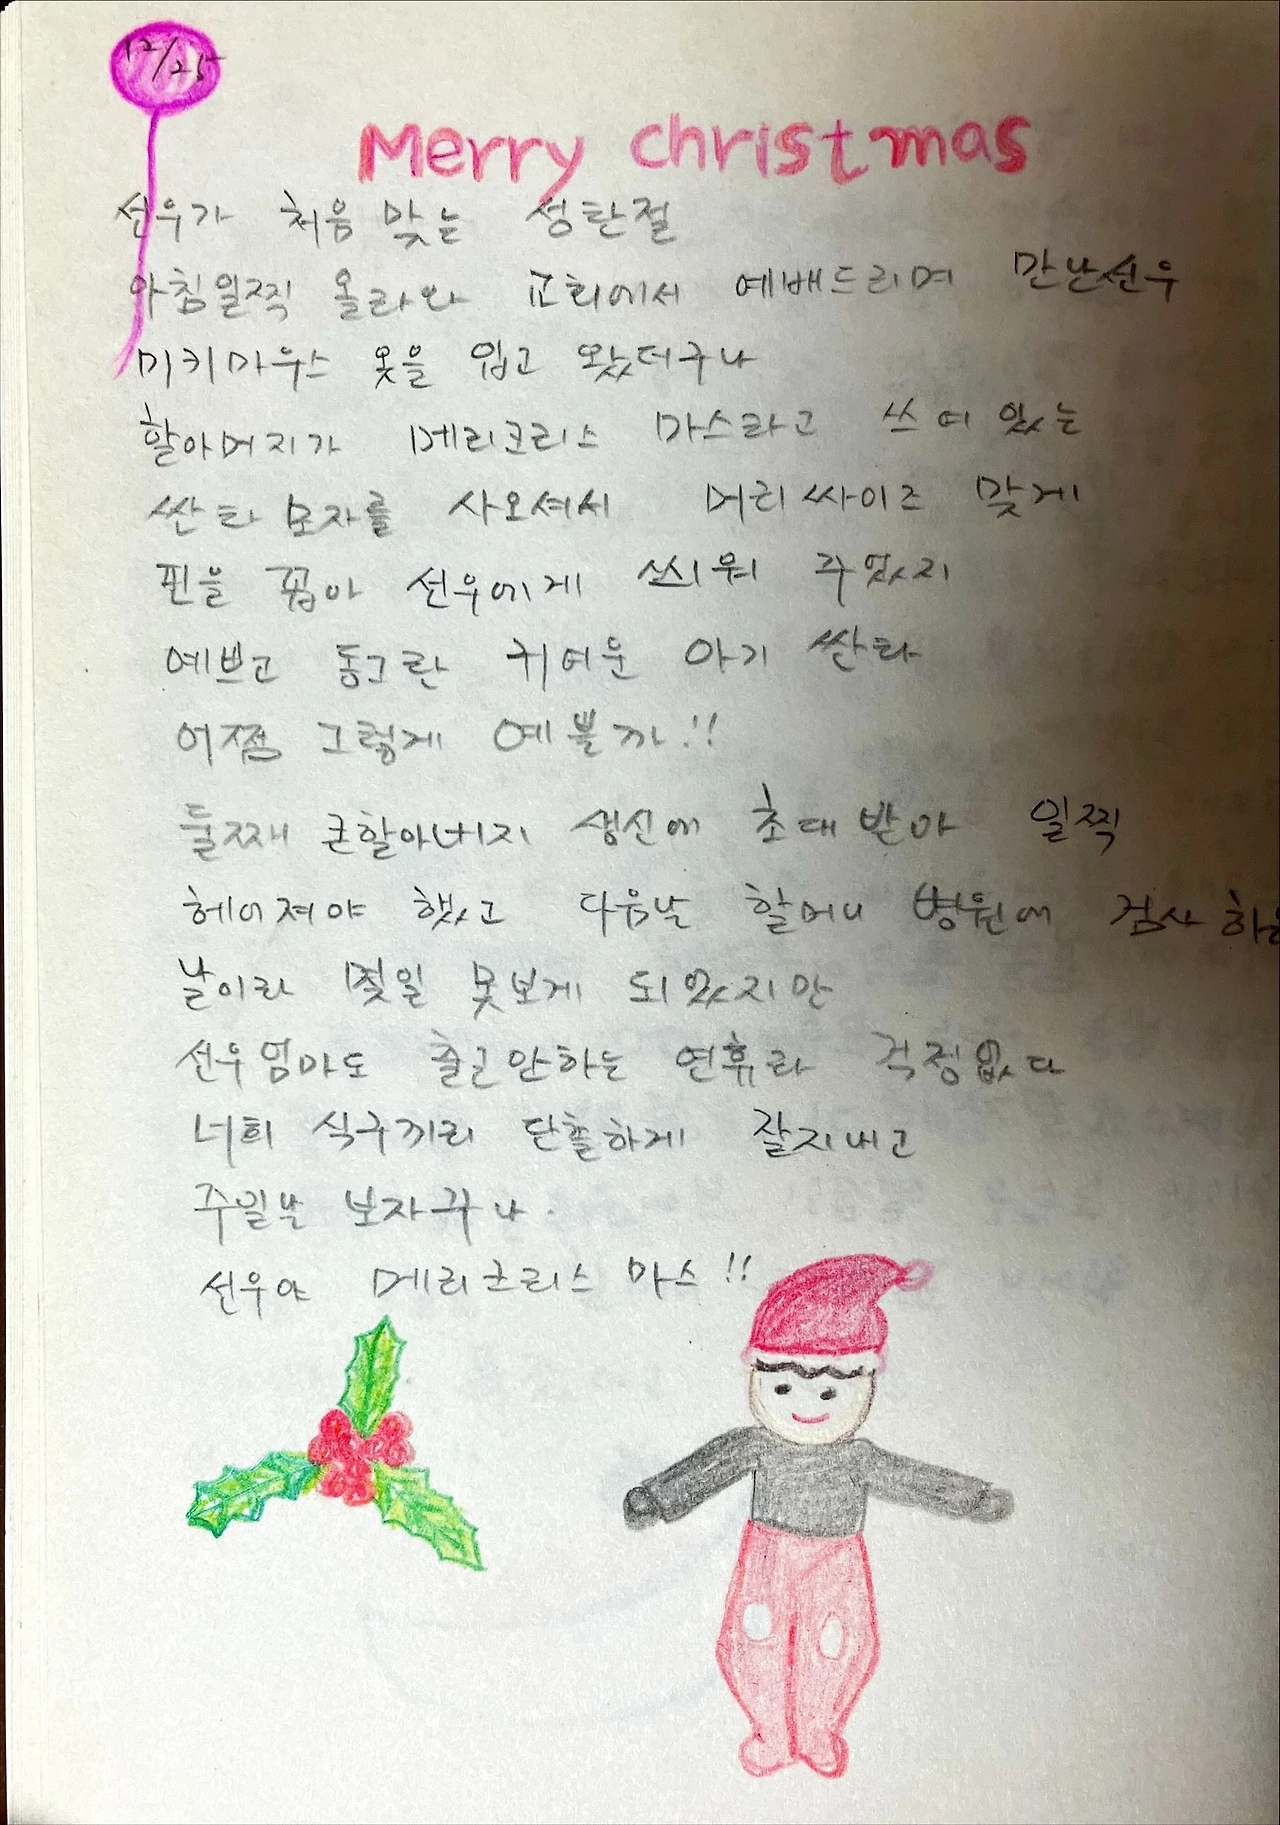 12/25
Merry christmas
선우가 처음 맞는 성탄절
아침일찍 올라와 교회에서 예배드리며 만난선우
미키마우스 옷을 입고 왔더구나
할아버지가 메리크리스 마스라고 쓰여 있는
싼타 모자를 사오셔서 머리 싸이즈 맞게
핀을 꼽아 선우에게 씌워 주었지
예쁘고 동그란 귀여운 아기 싼타
어쩜 그렇게 예쁠까!!
둘째 큰할아버지 생신에 초대 받아 일찍
헤어져야 했고 다음날 할머니 병원에 검사
날이라 몇일 못보게 되었지만
선우엄마도 출근안하는 연휴라 걱정없다
너희 식구끼리 단촐하게 잘지내고
주일날 보자꾸나.
선우야 메리크리스 마스!!